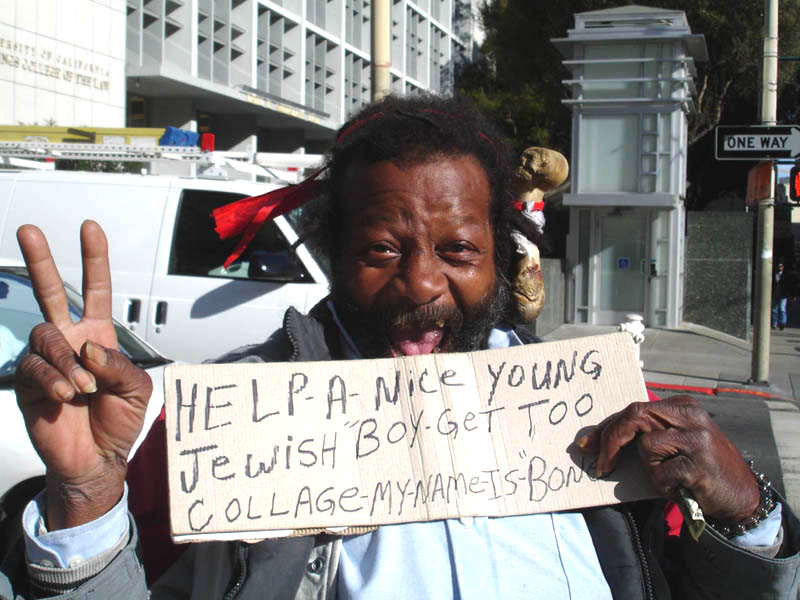 UNIVERSITY OF CALIFORNIA
COLLEGE OF THE LAW
ONE WAY
HELP-A-Nice YOUNG
JewisH "BOY-Get TOO
COLLAGe-MY-NAMe-IS-"BONe